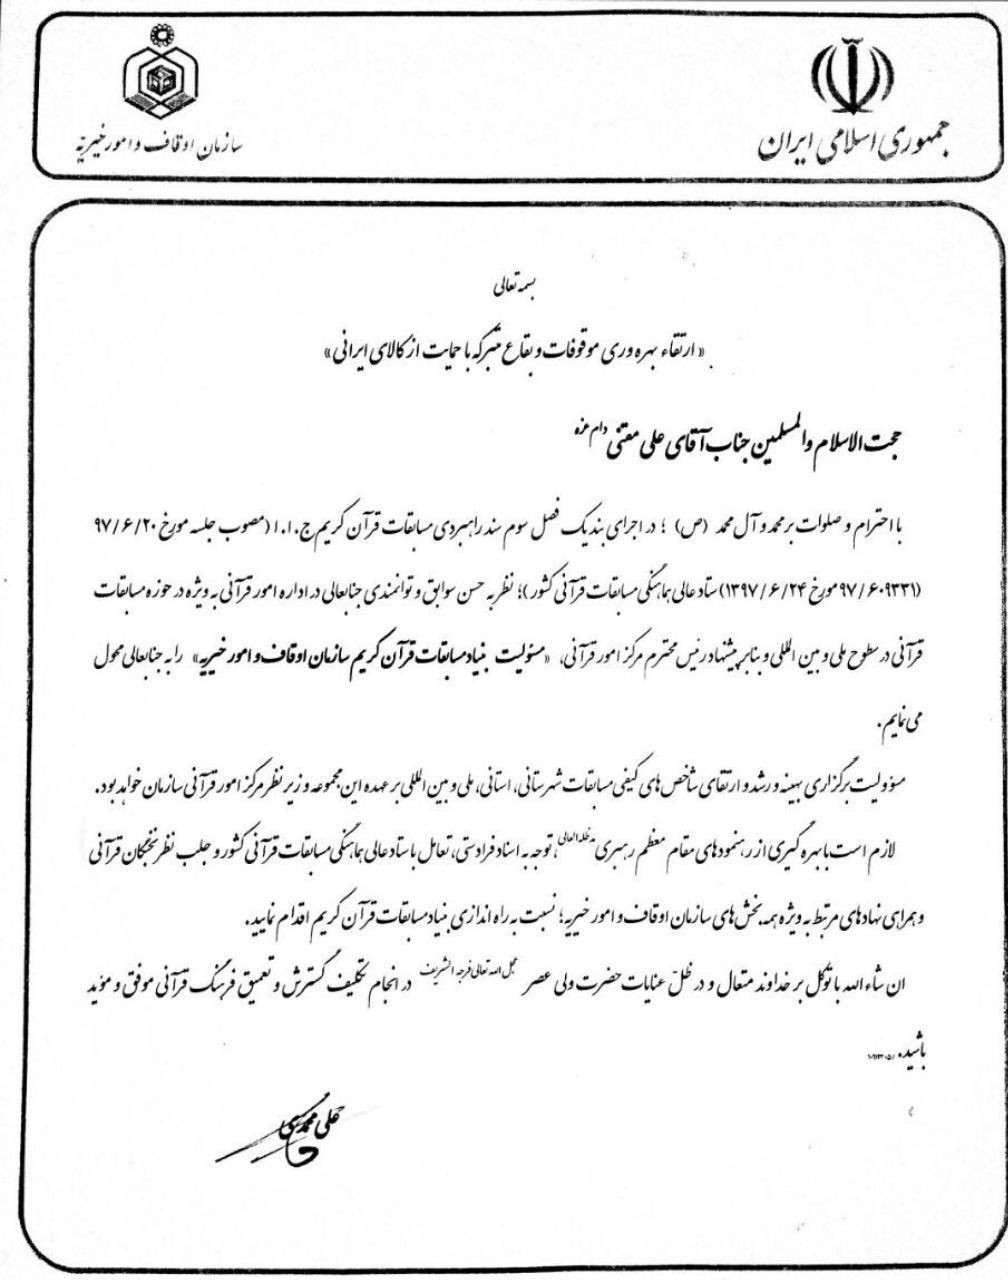 جمهوری اسلامی ایران
سازمان اوقاف و امور خیریه
بسمه تعالی
« ارتقاء بهره وری موقوفات و بقاع متبرکه با حمایت از کالای ایرانی »
حجت الاسلام والمسلمین جناب آقای علی مفتنی دام عزه
با احترام و صلوات بر محمد و آل محمد (ص) ؛ در اجرای بند یک فصل سوم سند راهبردی مسابقات قرآن کریم ج.ا.ا (مصوب جلسه مورخ ۹۷/۶/۲۰
(۹۷/۶۰۹۳۳۱ مورخ ۱۳۹۷/۶/۲۴) ستاد عالی هماهنگی مسابقات قرآنی کشور )؛ نظر به حسن سوابق و توانمندی جنابعالی در اداره امور قرآنی به ویژه در حوزه مسابقات
قرآنی در سطوح ملی و بین المللی و بنابر پیشنهاد رئیس محترم مرکز امور قرآنی، «مسئولیت بنیاد مسابقات قرآن کریم سازمان اوقاف و امور خیریه» را به جنابعالی محول
می نمایم.
مسؤولیت برگزاری بهینه و رشد و ارتقای شاخص های کیفی مسابقات شهرستانی، استانی، ملی و بین المللی بر عهده این مجموعه و زیر نظر مرکز امور قرآنی سازمان خواهد بود.
لازم است با بهره گیری از رهنمودهای مقام معظم رهبری مدظله العالی، توجه به اسناد فرادستی، تعامل با ستاد عالی هماهنگی مسابقات قرآنی کشور و جلب نظر نخبگان قرآنی
و همراهی نهادهای مرتبط به ویژه همه بخش های سازمان اوقاف و امور خیریه؛ نسبت به راه اندازی بنیاد مسابقات قرآن کریم اقدام نمایید.
ان شاء الله با توکل بر خداوند متعال و در ظلّ عنایات حضرت ولی عصر عجل الله تعالی فرجه الشریف در انجام تکلیف گسترش و تعمیق فرهنگ قرآنی موفق و مؤید
باشید.
علی محمدی